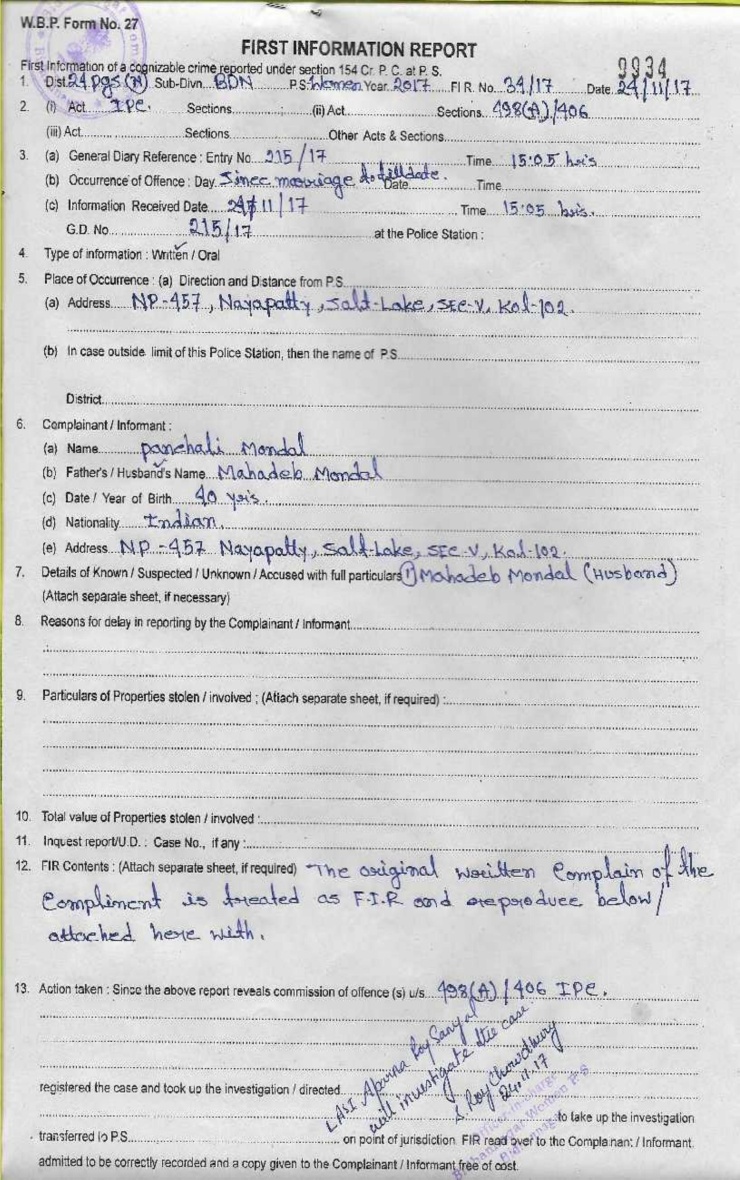 W.B.P. Form No. 27
FIRST INFORMATION REPORT
9934
First Information of a cognizable crime reported under section 154 Cr. P. C. at P. S.
1. Dist. 24 pgs (N) Sub-Divn. BDN P.S. Women Year 2017 FIR. No. 34/17 Date 24/11/17
2. (i) Act IPC. Sections (ii) Act Sections 498(A)/406
(iii) Act Sections Other Acts & Sections
3. (a) General Diary Reference : Entry No. 215/17 Time 15:05 hrs
(b) Occurrence of Offence : Day Since marriage to till date. Date Time
(c) Information Received Date 24/11/17 Time 15:05 hrs.
G.D. No. 215/17 at the Police Station :
4. Type of information : Written / Oral
5. Place of Occurrence : (a) Direction and Distance from P.S.
(a) Address NP-457, Nayapatty, Salt-Lake, SEC-V, Kol-102.
(b) In case outside limit of this Police Station, then the name of P.S.
District
6. Complainant / Informant :
(a) Name panchali Mondal
(b) Father's / Husband's Name Mahadeb Mondal
(c) Date / Year of Birth 40 yrs.
(d) Nationality Indian.
(e) Address NP-457 Nayapatty, Salt-Lake, SEC-V, Kol-102.
7. Details of Known / Suspected / Unknown / Accused with full particulars 1) Mahadeb Mondal (Husband)
(Attach separate sheet, if necessary)
8. Reasons for delay in reporting by the Complainant / Informant
9. Particulars of Properties stolen / involved ; (Attach separate sheet, if required) :
10. Total value of Properties stolen / involved :
11. Inquest report/U.D. : Case No., if any :
12. FIR Contents : (Attach separate sheet, if required) The original written Complain of the
Compliment is treated as F.I.R and reproduce below/
attached here with.
13. Action taken : Since the above report reveals commission of offence (s) u/s. 498(A)/406 IPC.
LASI Aparna Roy Sanyal
will investigate the case
S. Roy Chowdhury
24.11.17
Officer-in-charge
Bidhannagar Women P.S
Bidhannagar
registered the case and took up the investigation / directed
to take up the investigation
transferred to P.S. on point of jurisdiction. FIR read over to the Complainant / Informant.
admitted to be correctly recorded and a copy given to the Complainant / Informant free of cost.